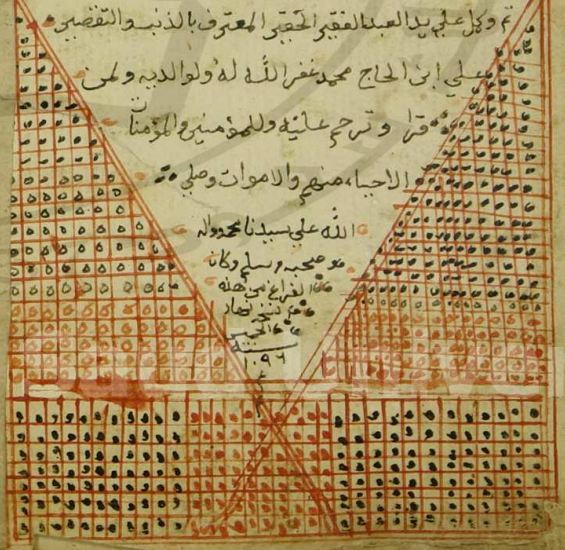 تم وكمل على يد العبد الفقير الحقير المعترف بالذنب والتقصير
علي ابن الحاج محمد غفر الله له ولوالديه ولمن
قرا وترحم عليه وللمؤمنين والمؤمنات
الاحياء منهم والاموات وصلى
الله على سيدنا محمد واله
وصحبه وسلم وكان
الفراغ من هذه
نهار
١٠٩٦